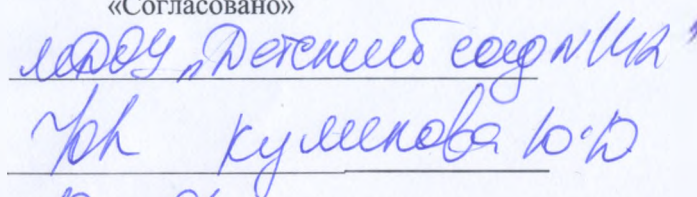 «Согласовано»
МДОУ „Детский сад №112"
Куликова Ю.Ю.